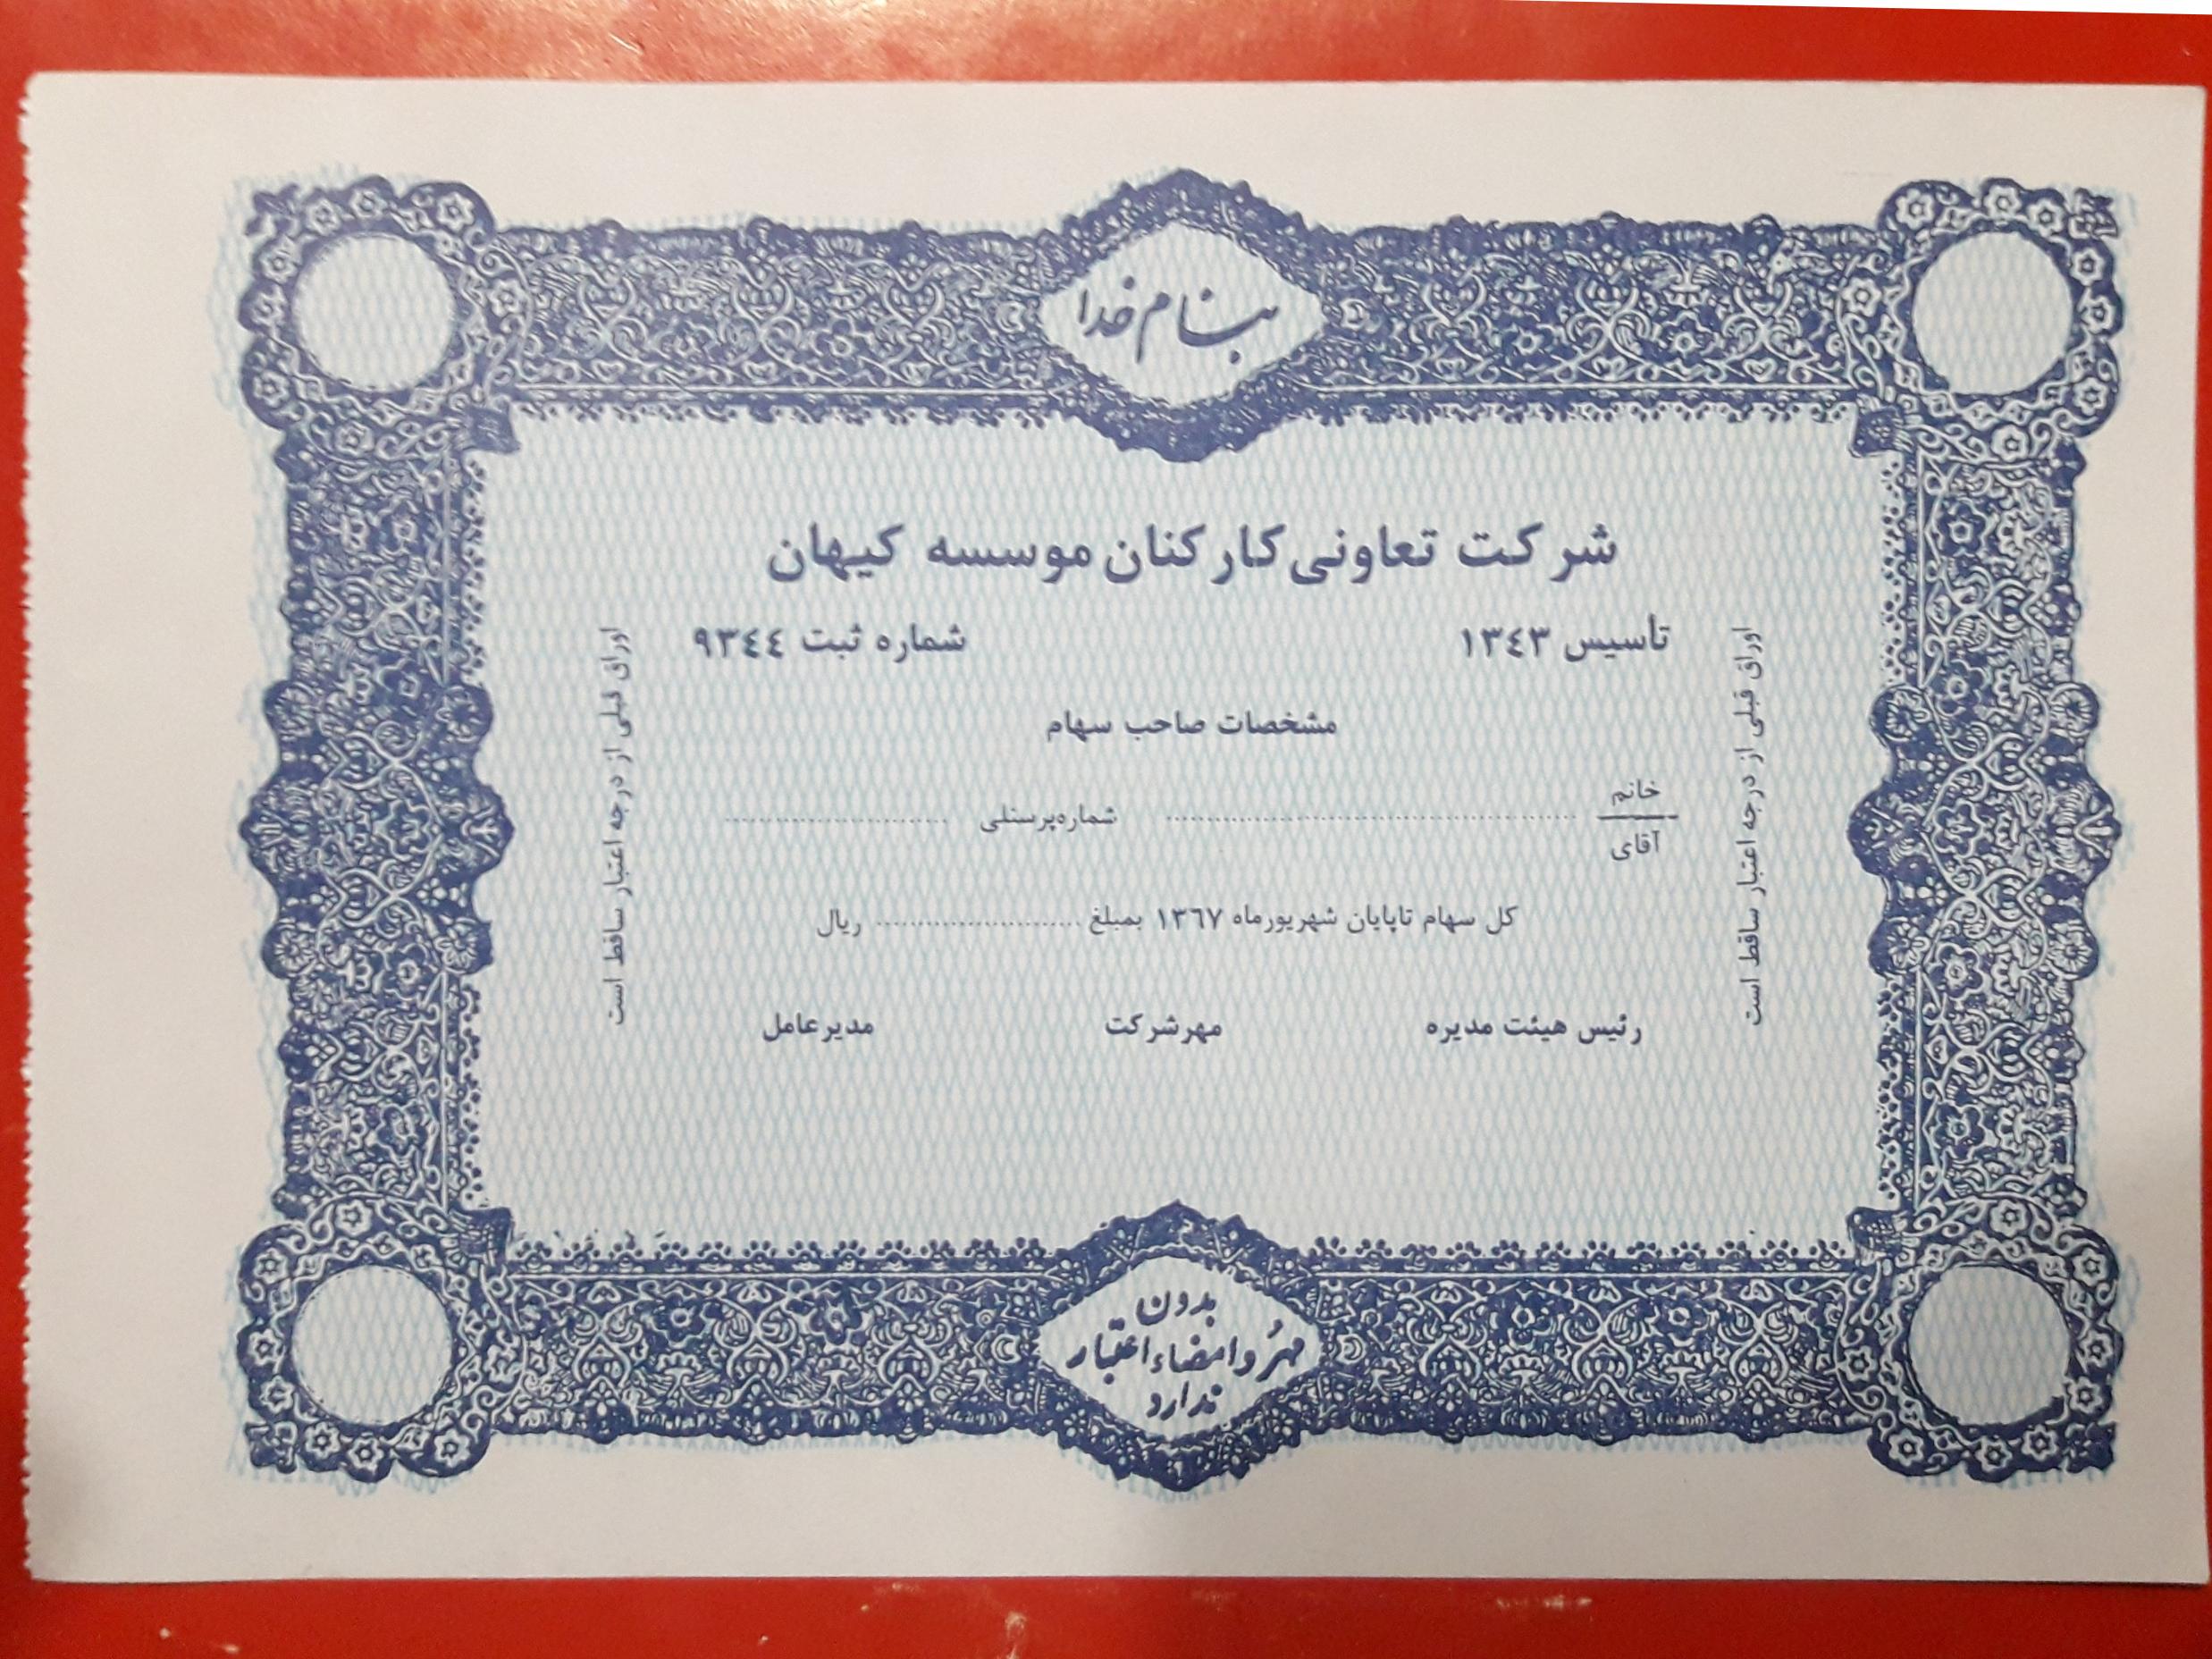 بنام خدا
شرکت تعاونی کارکنان موسسه کیهان
تأسیس ۱۳٤۳
شماره ثبت ۹۳٤٤
مشخصات صاحب سهام
خانم
آقای
شماره‌پرسنلی
کل سهام تاپایان شهریورماه ۱۳٦۷ بمبلغ ........................ ریال
رئیس هیئت مدیره
مهرشرکت
مدیرعامل
اوراق قبلی از درجه اعتبار ساقط است
اوراق قبلی از درجه اعتبار ساقط است
بدون
مهُر وامضاء اعتبار
ندارد